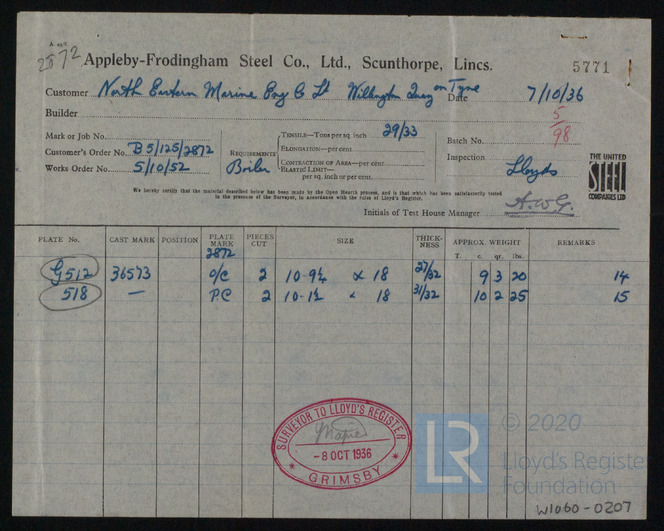 2872
Appleby-Frodingham Steel Co., Ltd., Scunthorpe, Lincs. 5771
Customer North Eastern Marine Eng Co Lt Willington Quay on Tyne Date 7/10/36
Builder 5/98
Mark or Job No.
Customer's Order No. B5/125/2872
Works Order No. 5/10/52
REQUIREMENTS Boiler
TENSILE—Tons per sq. inch 29/33
ELONGATION—per cent
CONTRACTION OF AREA—per cent
ELASTIC LIMIT—
per sq. inch or per cent.
Batch No.
Inspection Lloyds
THE UNITED
STEEL
COMPANIES LTD
We hereby certify that the material described below has been made by the Open Hearth process, and is that which has been satisfactorily tested
in the presence of the Surveyor, in accordance with the rules of Lloyd's Register.
Initials of Test House Manager A.W.G.
PLATE No. CAST MARK POSITION PLATE MARK PIECES CUT SIZE THICKNESS APPROX. WEIGHT REMARKS
T. c. qr. lbs.
2872
G512 36573 O/C 2 10-9½ x 18 27/32 9 3 20 14
518 — PC 2 10-1½ x 18 31/32 10 2 25 15
SURVEYOR TO LLOYD'S REGISTER
-8 OCT 1936
GRIMSBY
LR
© 2020
Lloyd's Register
Foundation
W1060-0207